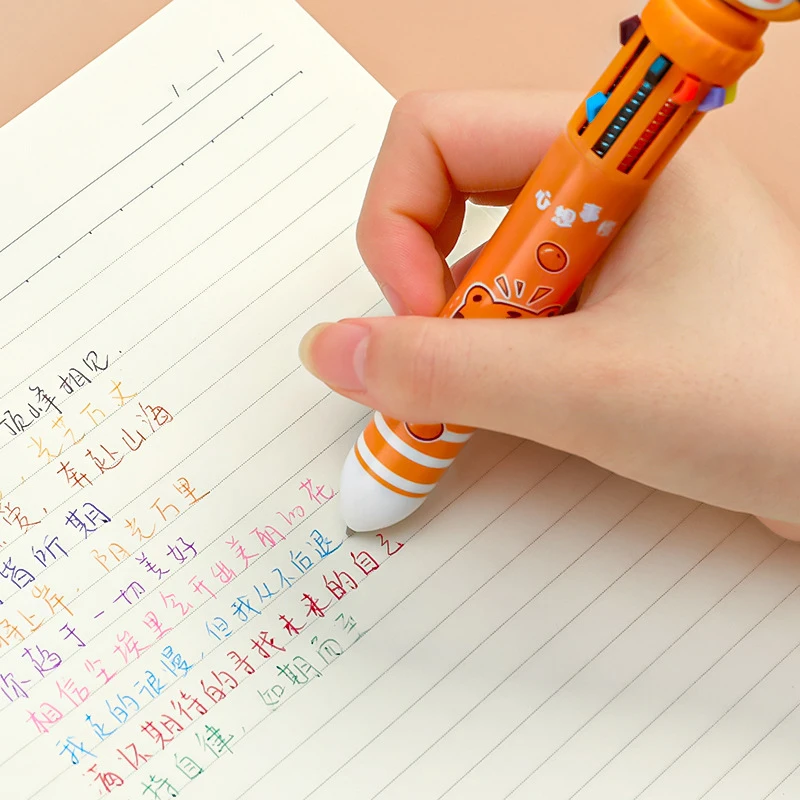 心想事
顶峰相见.
光芒万丈
爱, 奔赴山海
皆所期
将上岸, 阳光万里
你趋于一切美好
相信尘埃里会开出美丽的花
我走的很慢, 但我从不后退
满怀期待的寻找未来的自己
持自律, 如期而至